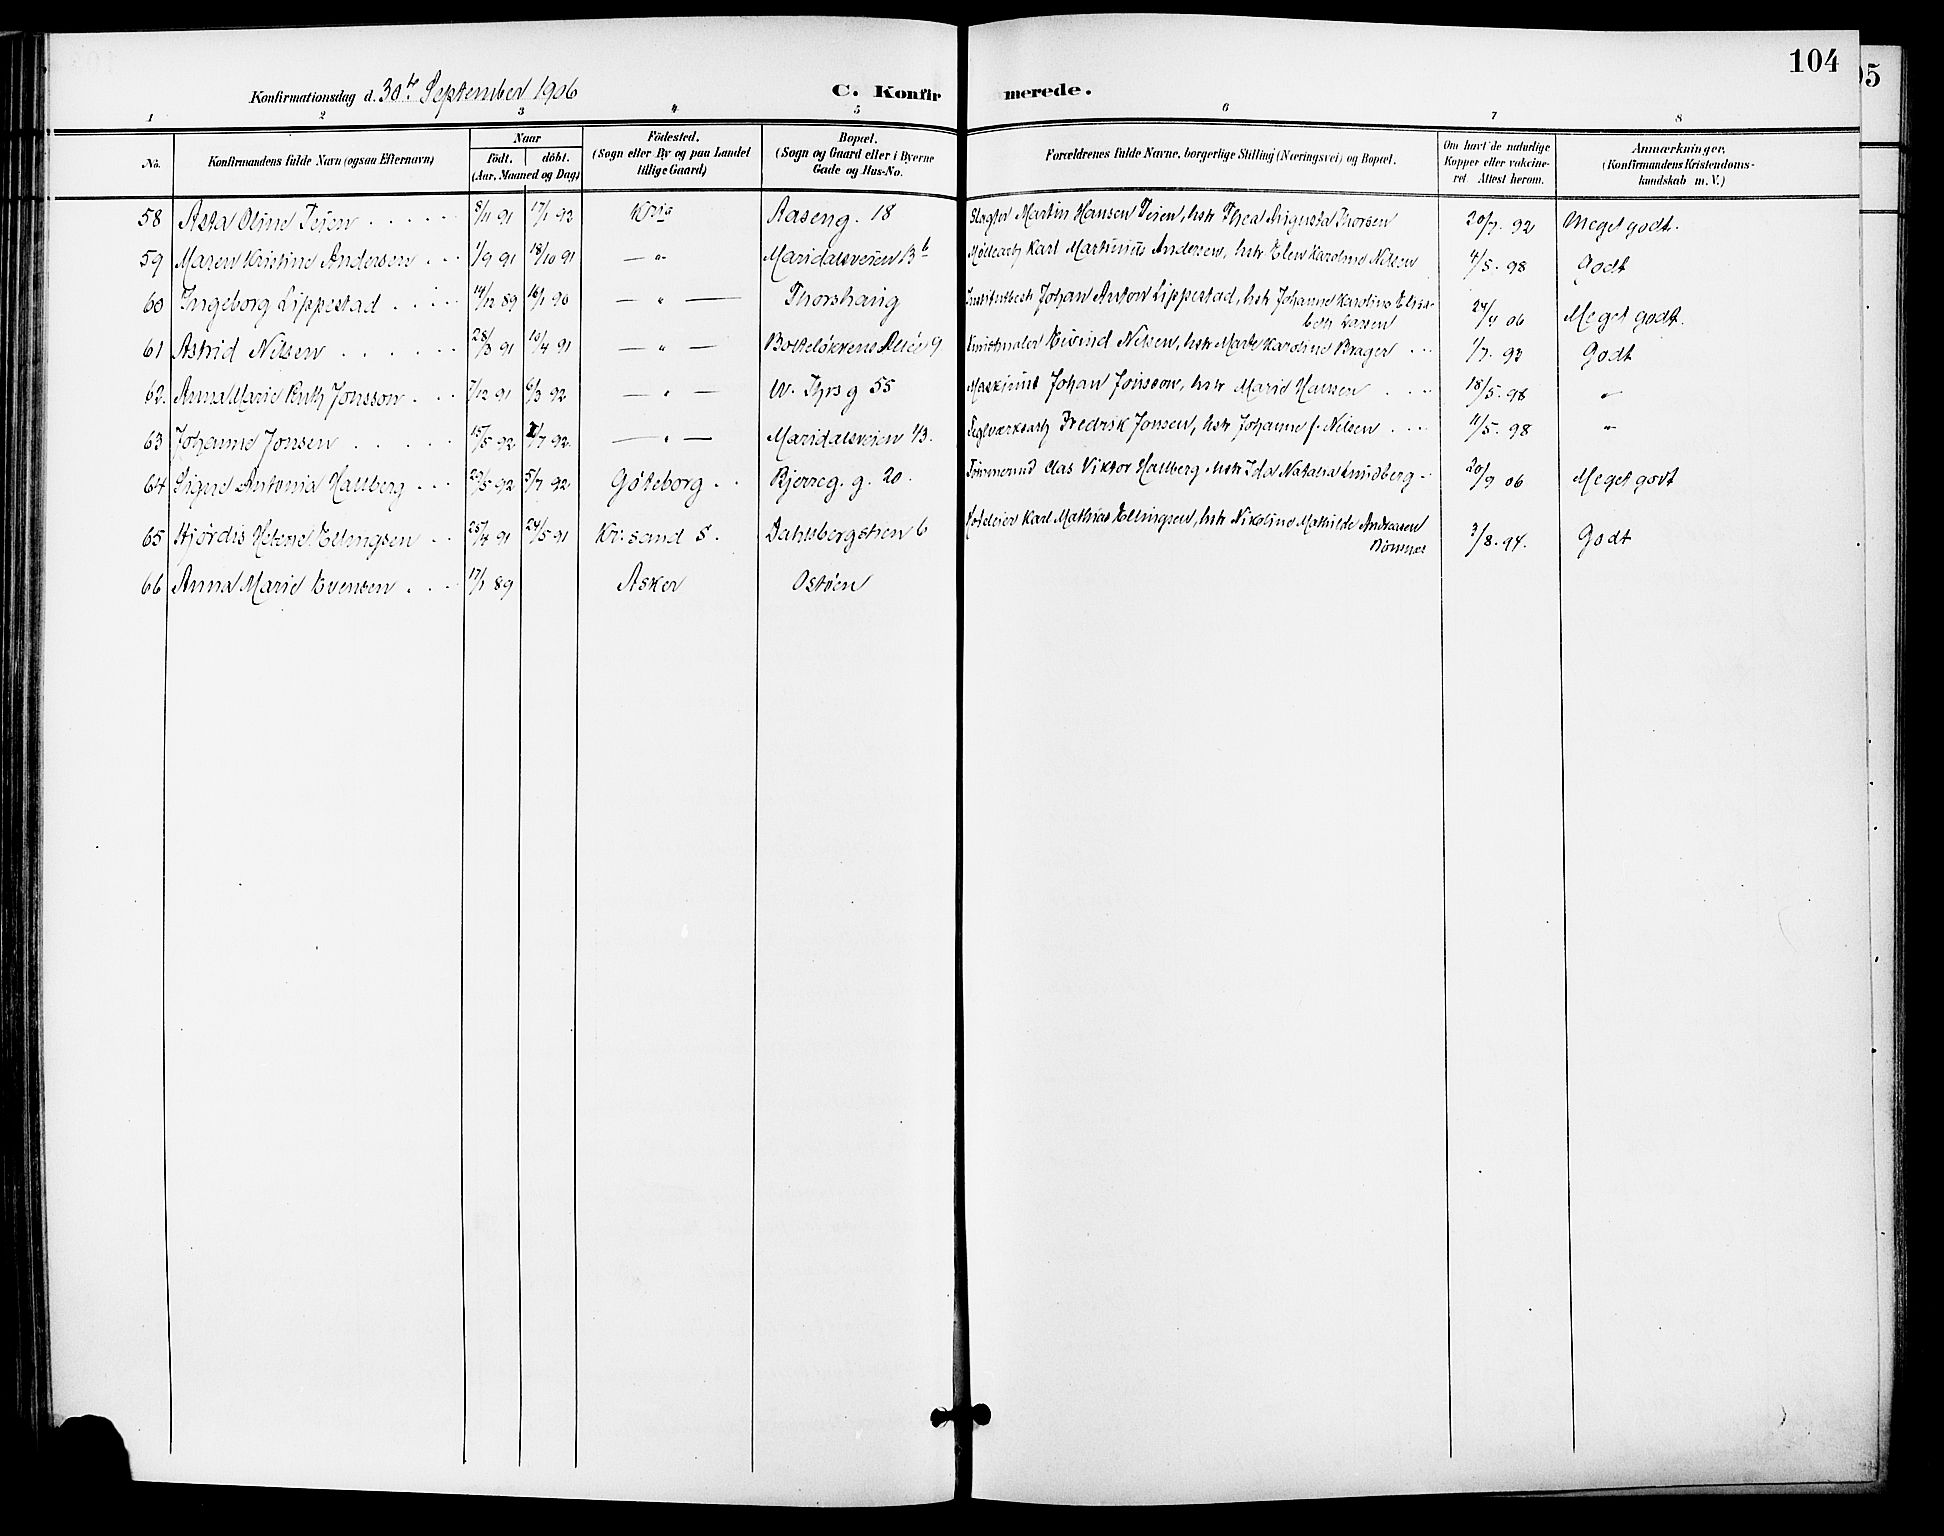 104
05
Konfirmationsdag d. 30te September 1906
C. Konfirmerede.
1 2 3 4 5 6 7 8
No. Konfirmandens fulde Navn (ogsaa Efternavn) Naar født. døbt. (Aar, Maaned og Dag) Fødested. (Sogn eller By og paa Landet tillige Gaard) Bopæl. (Sogn og Gaard eller i Byerne Gade og Hus-No. Forældrenes fulde Navne, borgerlige Stilling (Næringsvei) og Bopæl. Om havt de naturlige Kopper eller vakcineret. Attest herom. Anmærkninger. (Konfirmandens Kristendomskundskab m. V.)
58 Asta Oline Teien 8/11 91 17/1 92 Kria Aaseng. 18 Slagter Martin Hansen Teien, hstr Thea Augusta Thorsen 20/7. 92 Meget godt.
59 Maren Kristine Andersen 1/9 91 18/10 91 — " Maridalsveien 13b Møllearb Karl Martinius Andersen, hstr Elen Karoline Nilsen 4/5. 98 Godt
60 Ingeborg Lippestad 14/12 89 16/1 90 — " — Thorshaug Institutbest Johan Anton Lippestad, hstr Johanne Karoline Elisabeth Larsen 24/4 06 Meget godt.
61 Astrid Nilsen 28/3 91 10/4 91 — " — Bolteløkkens Allé 9 Kunstmaler Eivind Nilsen, hstr Marte Karoline Brager 1/7. 93 Godt
62. Anna Marie Ruth Jonsson 7/12 91 6/3 92 — " — W. Thrs g 55 Maskinist Johan Jonsson, hstr Marie Hansen 18/5. 98 "
63 Johanne Jonsen 15/5 92 /7 92 — " — Maridalsveien 43. Teglværksarb Fredrik Jonsen, hstr Johanne f. Nilsen 11/5. 98 "
64 Signe Antonia Hallberg 23/5 92 5/7 92 Gøteborg Bjerreg. g. 20. Tømmermd Clas Viktor Hallberg, hstr Ida Natalia Lundberg 20/9 06 Meget godt
65 Hjørdis Helene Ellingsen 25/4 91 24/5 91 Kr.sand S. Dahlsbergstien 6 Karl Mathias Ellingsen, hstr Nikoline Mathilde Andreasen 3/8. 94. Godt
66 Anna Marie Evensen 17/1 89 Asker Ostøen